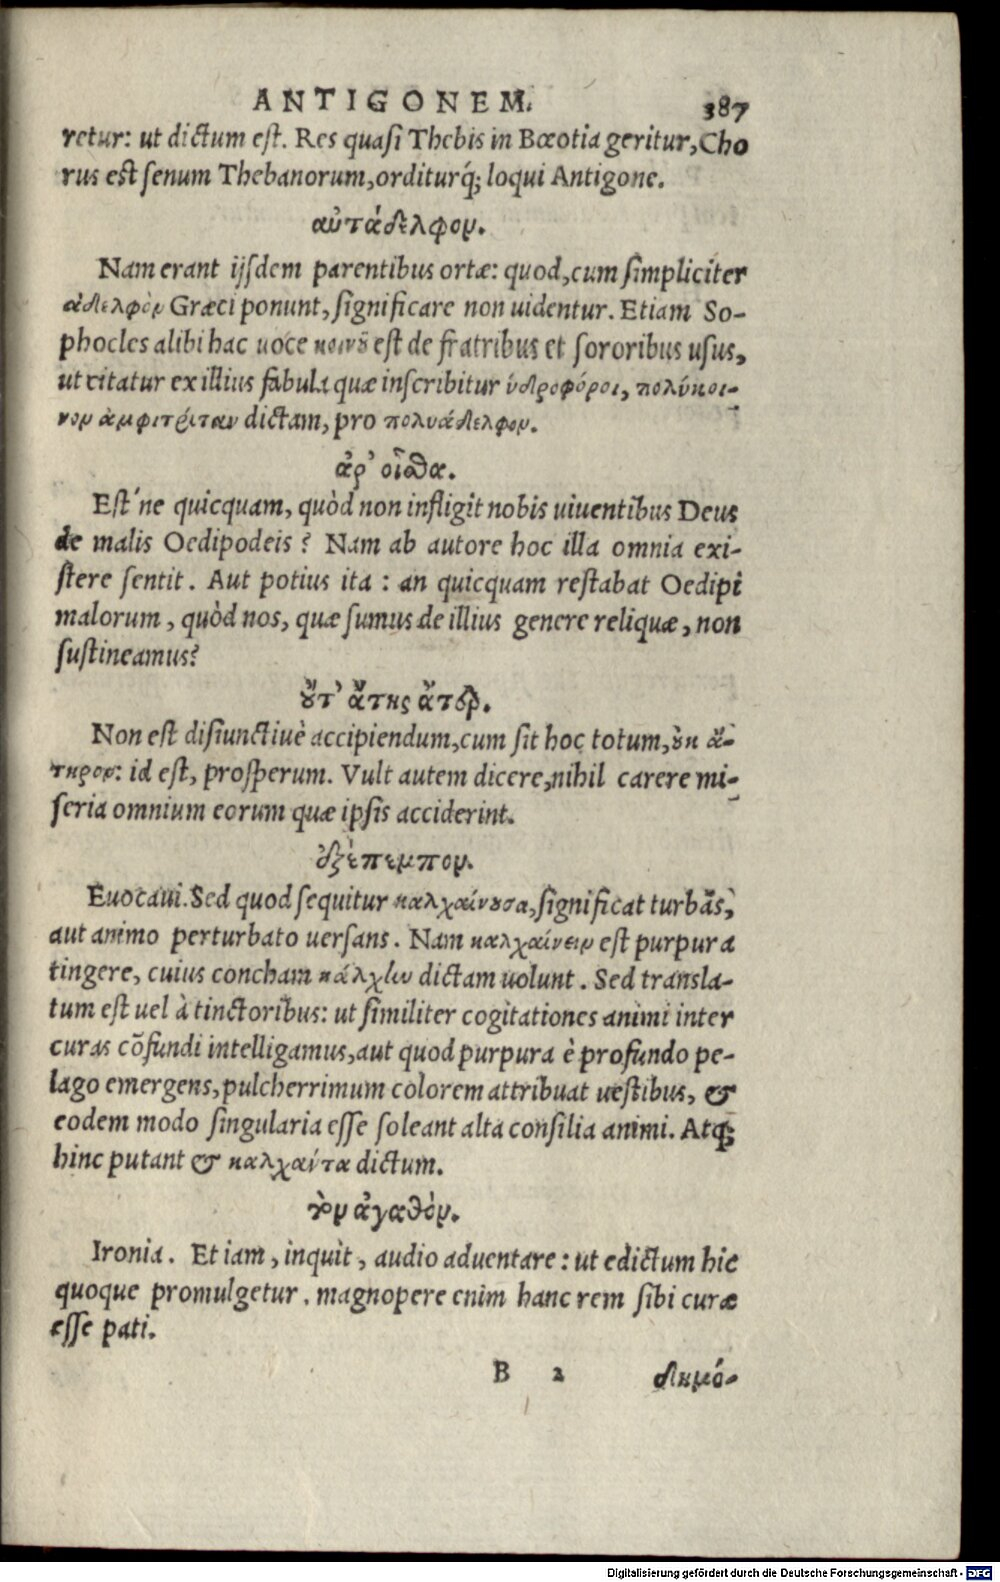 ANTIGONEM. 387
retur: ut dictum est. Res quasi Thebis in Bœotia geritur, Cho
rus est senum Thebanorum, orditurq́; loqui Antigone.
αὐτάδελφον.
Nam erant ijsdem parentibus ortæ: quod, cum simpliciter
ἀδελφὸν Græci ponunt, significare non uidentur. Etiam So-
phocles alibi hac uoce κοινȣ͂ est de fratribus et sororibus usus,
ut citatur ex illius fabula quæ inscribitur ὑδροφόροι, πολύκοι-
νον ἀμφιτρίταν dictam, pro πολυάδελφον.
ἆρ’ οἶσθα.
Est’ne quicquam, quòd non infligit nobis uiuentibus Deus
de malis Oedipodeis? Nam ab autore hoc illa omnia exi-
stere sentit. Aut potius ita: an quicquam restabat Oedipi
malorum, quòd nos, quæ sumus de illius genere reliquæ, non
sustineamus?
ȣ̓́τ’ ἄτης ἄτερ.
Non est disiunctiuè accipiendum, cum sit hoc totum, ȣ̓κ ἄ-
τηρον: id est, prosperum. Vult autem dicere, nihil carere mi-
seria omnium eorum quæ ipsis acciderint.
ἐξέπεμπον.
Euocaui. Sed quod sequitur καλχαίνȣσα, significat turbās,
aut animo perturbato uersans. Nam καλχαίνειν est purpura
tingere, cuius concham κάλχην dictam uolunt. Sed transla-
tum est uel à tinctoribus: ut similiter cogitationes animi inter
curas cōfundi intelligamus, aut quod purpura è profundo pe-
lago emergens, pulcherrimum colorem attribuat uestibus, &
eodem modo singularia esse soleant alta consilia animi. Atq;
hinc putant & καλχαίντα dictum.
τὸν ἀγαθὸν.
Ironia. Etiam, inquit, audio aduentare: ut edictum hic
quoque promulgetur. magnopere enim hanc rem sibi curæ
esse pati.
B 2 δημό-
Digitalisierung gefördert durch die Deutsche Forschungsgemeinschaft - DFG